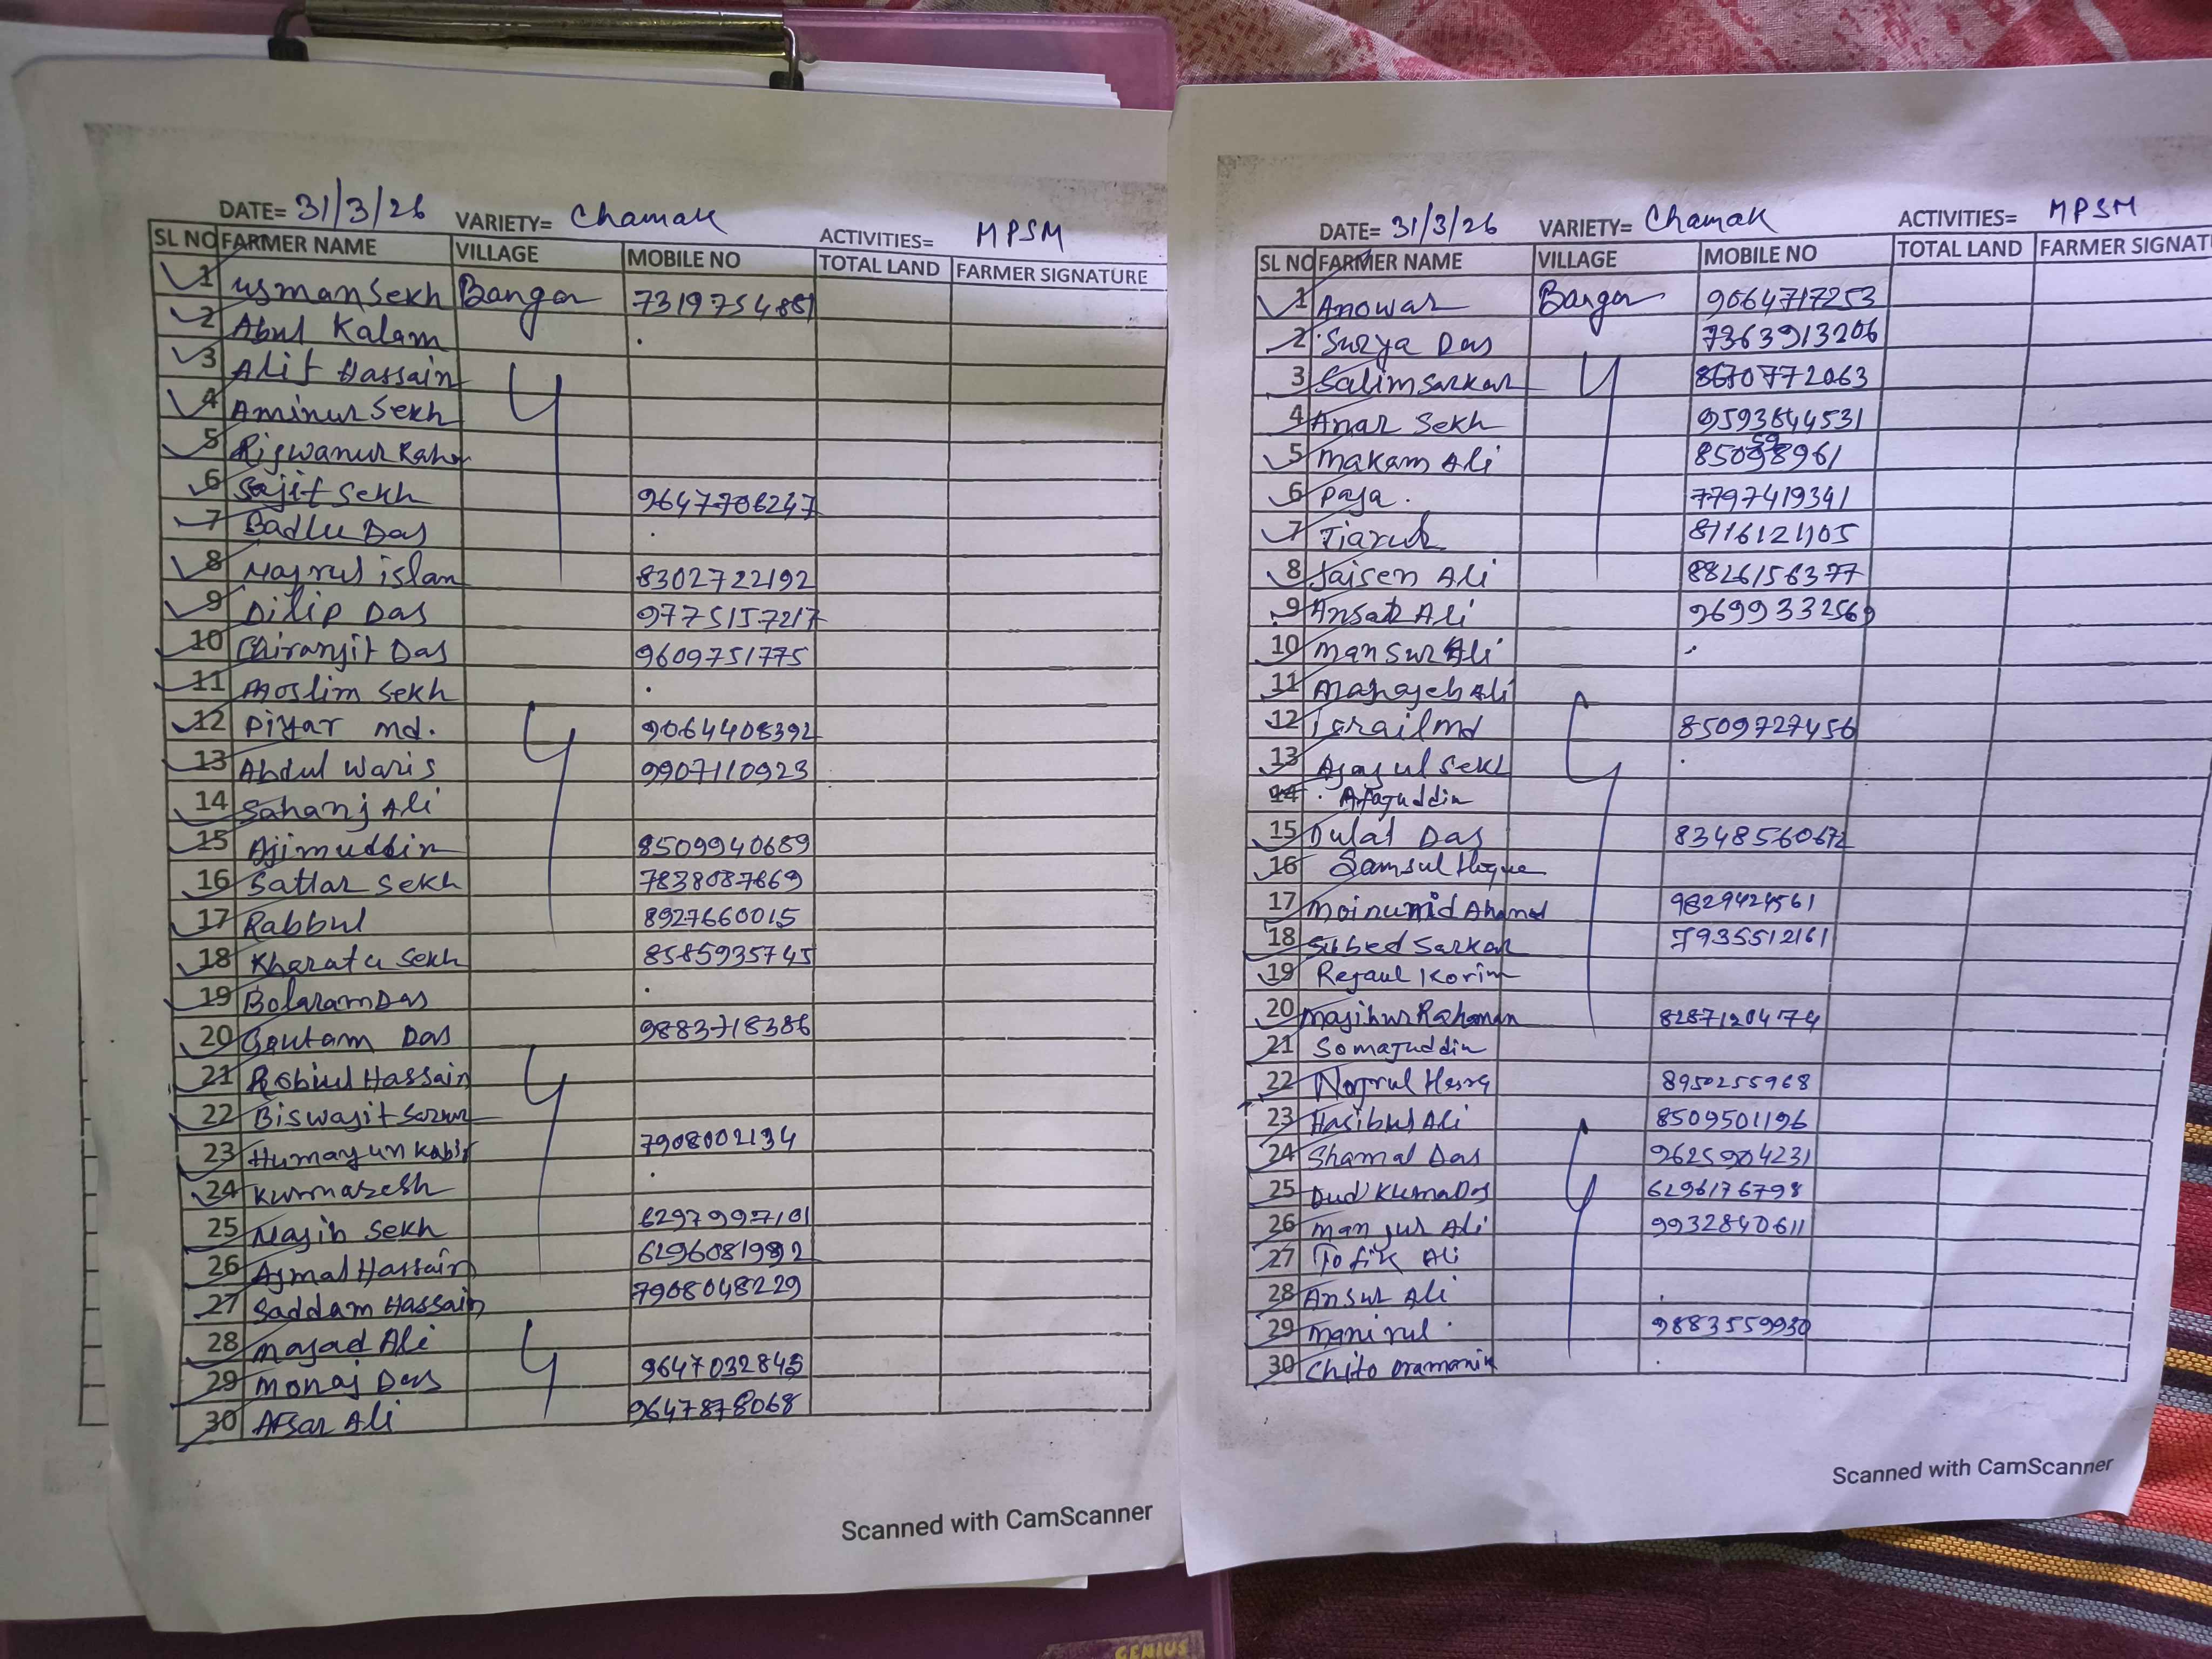 DATE= 31/3/26 VARIETY= Chamak ACTIVITIES= MPSM
SL NO FARMER NAME VILLAGE MOBILE NO TOTAL LAND FARMER SIGNATURE
1 Usman Sekh Bangor 7319754881
2 Abul Kalam
3 Alif Hassain
4 Aminur Sekh
5 Rigwanur Raha
6 Sajit Sekh 9647706247
7 Badlu Das
8 Najrul islam 8302722192
9 Dilip Das 9775157217
10 Chiranjit Das 9609751775
11 Moslim Sekh
12 Piyar md. 9064408392
13 Abdul Waris 9907110923
14 Sahanj Ali
15 Ajimuddin 8509940689
16 Sattar Sekh 7838087669
17 Rabbul 8927660015
18 Kharatu Sekh 8585935745
19 Bolaram Das
20 Goutam Das 9883718386
21 Robiul Hassain
22 Biswajit
23 Humayun Kabir 7908002134
24
25 Najib Sekh 6297997101
26 Ajmal Hassain 6296081992
27 Saddam Hassain 7908048229
28 Majad Ali
29 Monaj Das 9647032845
30 Afsar Ali 9647878068
Scanned with CamScanner
DATE= 31/3/26 VARIETY= Chamak ACTIVITIES= MPSM
SL NO FARMER NAME VILLAGE MOBILE NO TOTAL LAND FARMER SIGNAT
1 Anowar Bangor 9064717253
2 Surya Das 7363913206
3 Salim Sarkar 8670772063
4 Anar Sekh 9593844531
5 Makam Ali
6 Paja 7797419341
7 8116121105
8 Jaisen Ali 8826156377
9 Ansar Ali 9699332569
10 Mansur Ali
11 Ali
12 Israil md 8509727456
13 Ajajul Sekh
14 Afajuddin
15 Dulal Das 8348560672
16 Samsul Hoque
17 Ahamed 9829424561
18 Subed Sarkar 7935512161
19 Rejaul Korim
20 Majibur Rahaman 8287120474
21 Somajuddin
22 Nojrul 8950255968
23 Hasibul Ali 8509501196
24 Shamal Das 9625904231
25 Dud Kuma Das 6296176798
26 Manjur Ali 9932840611
27 Tofik Ali
28 Ansur Ali
29 Manirul 9883559930
30 Chito Pramanik
Scanned with CamScanner
GENIUS